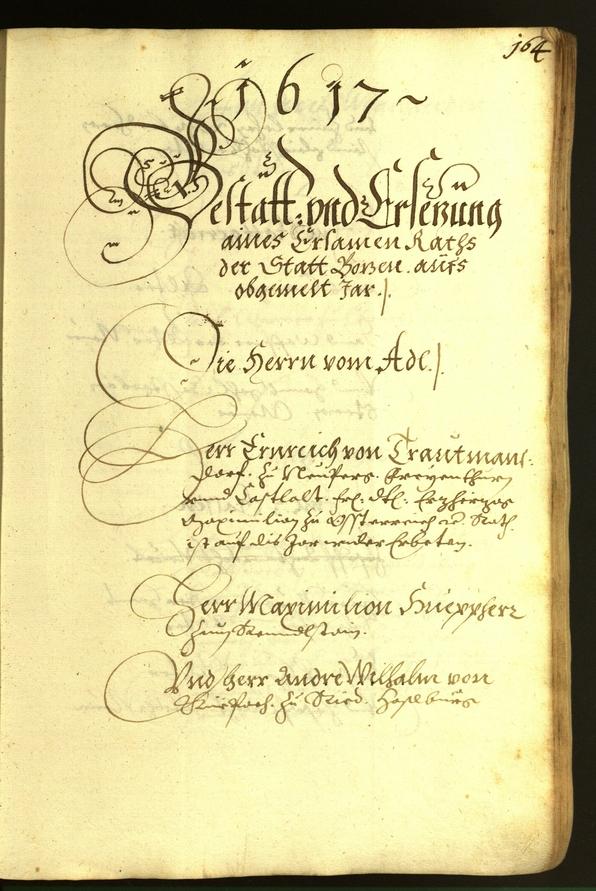 164
1617
Bestatt: vnd Ersezung
aines Ersamen Raths
der Statt Bozen aufs
obgemelt Jar ./.
Die Herrn vom Adl ./.
Herr Ernreich von Trautmans-
dorf. zu Neuhers. Freyenthurn
vnnd Castlalt. Frl. dtl. Erzherzog
Maximilian zu Össterreich etc. Rath.
ist auf dis Jar wider Erbeten.
Herr Maximilion Hueppherr
zum
Vnd Herr Andre Wilhalm von
zu Ried. Haslburg